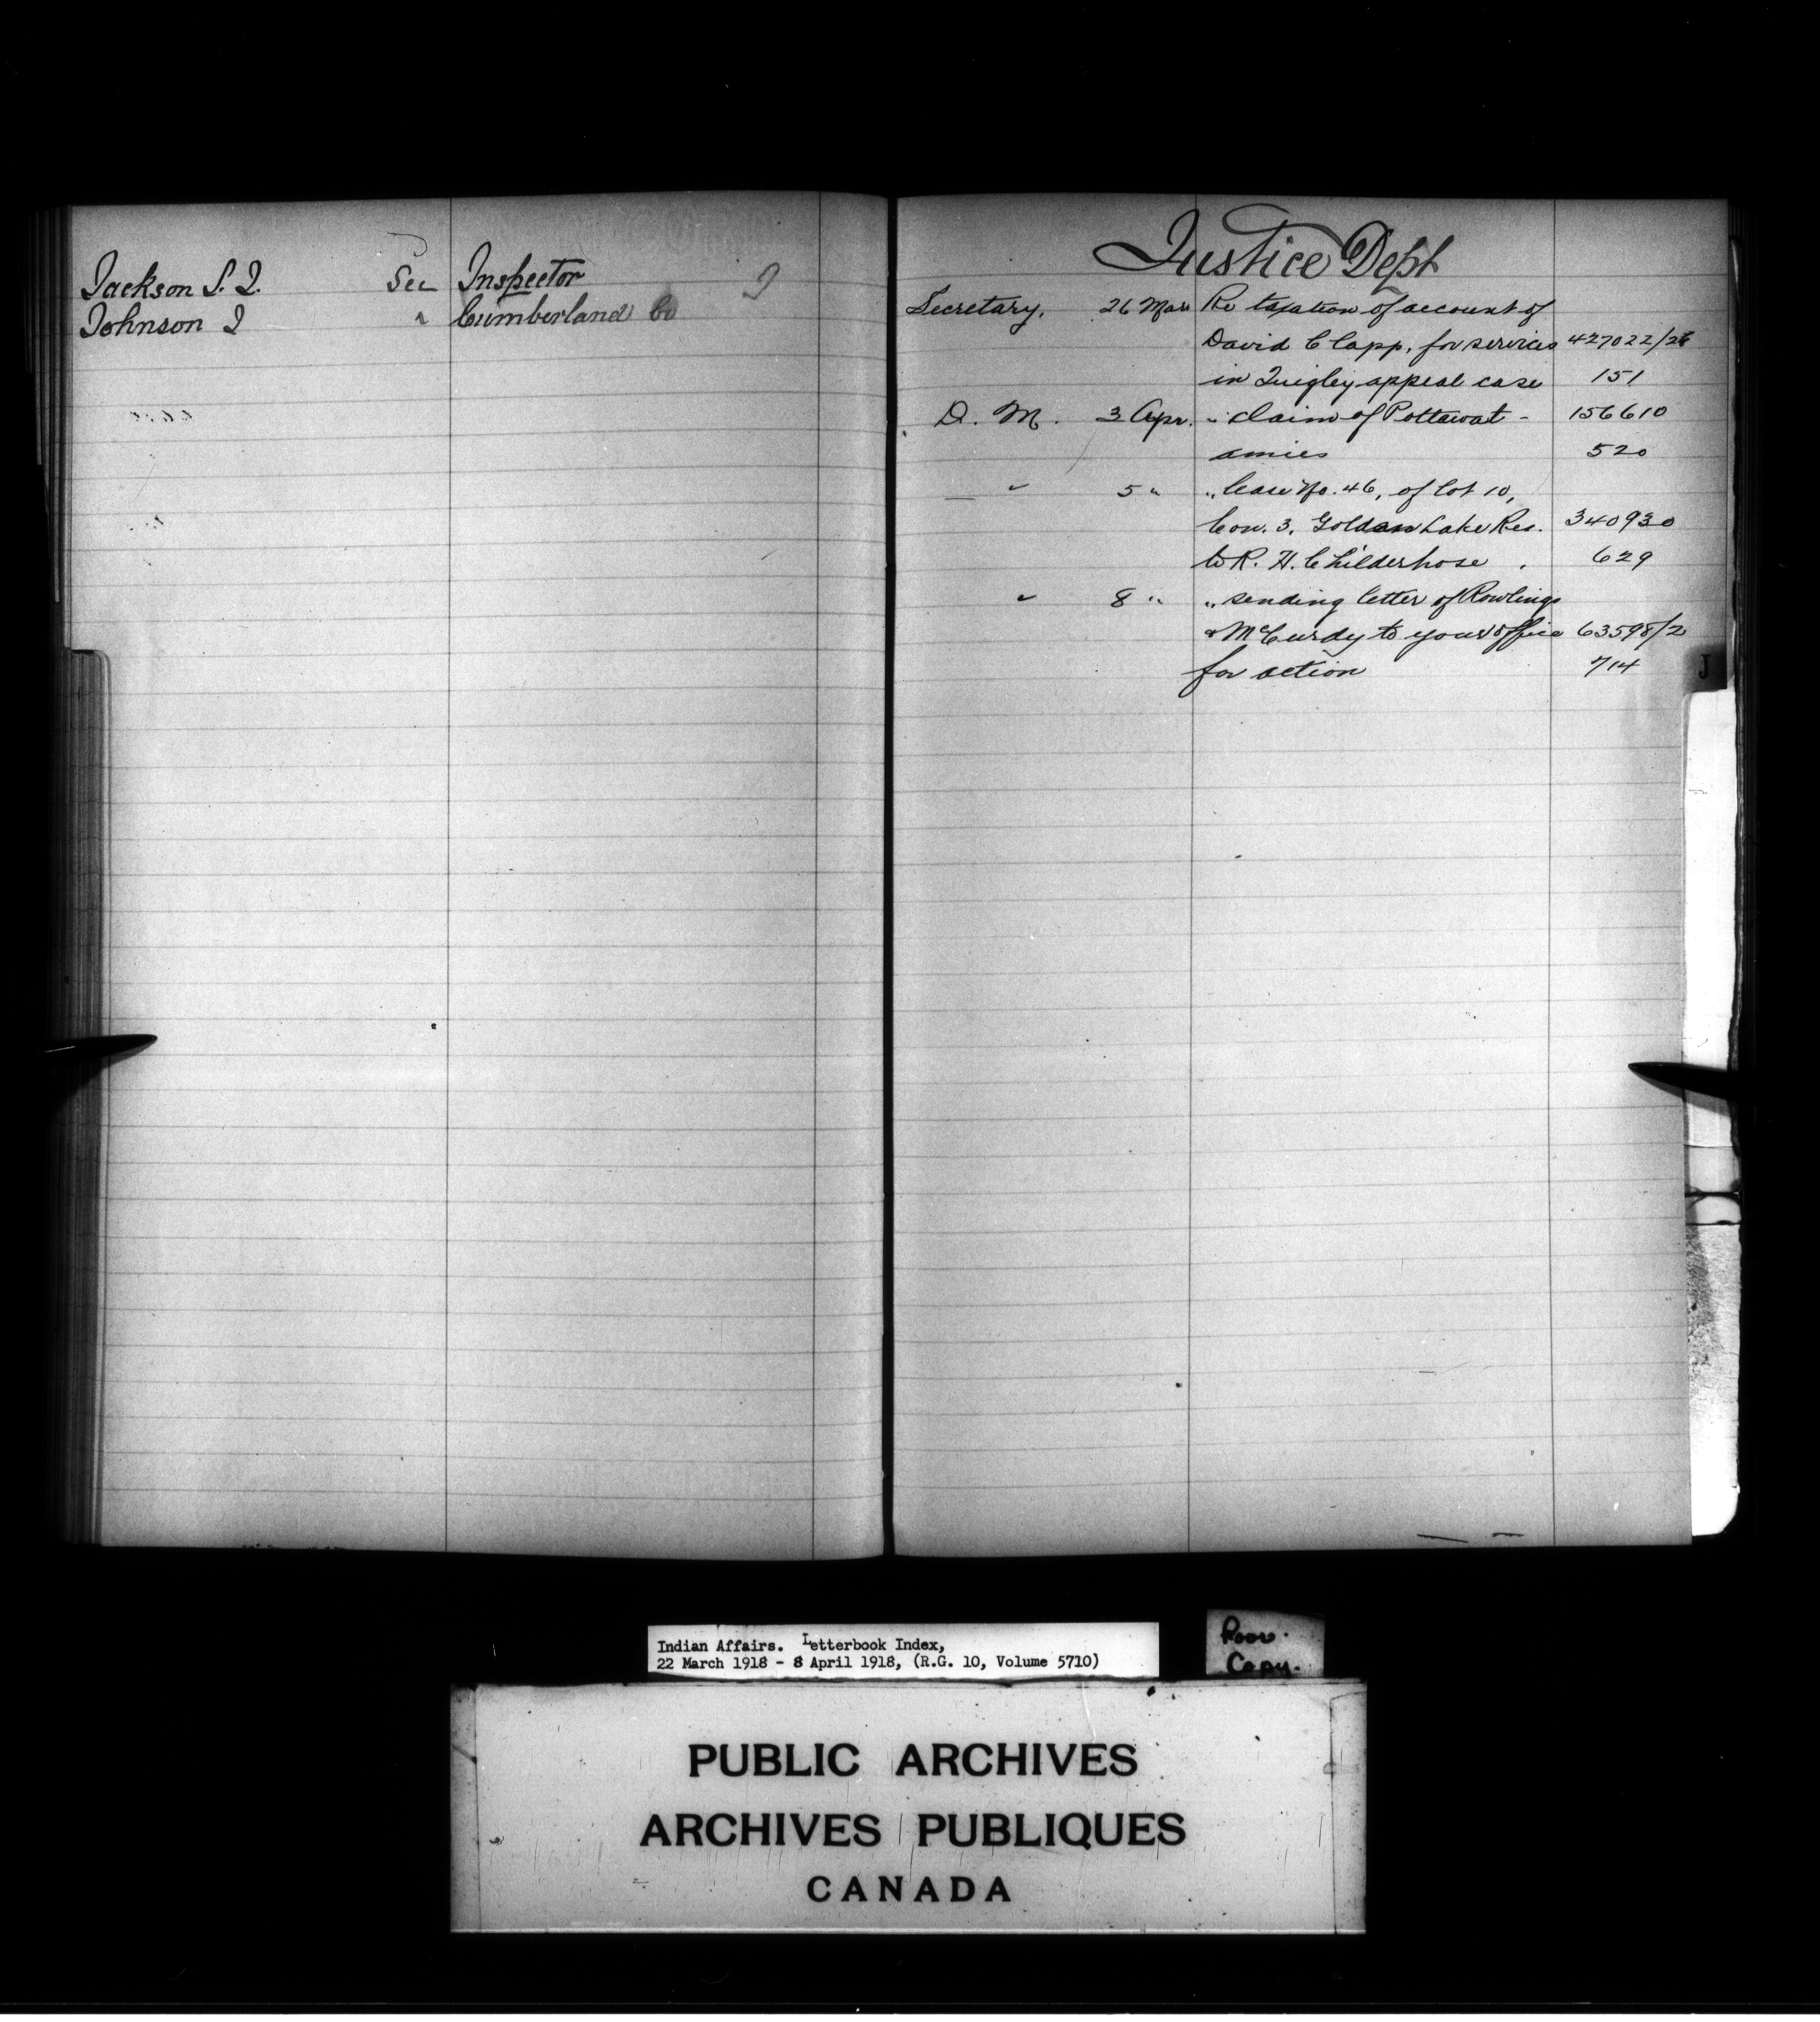 Jackson S. J. See Inspector J
Johnson J " Cumberland Co
Justice Dept
Secretary. 26 Mar Re taxation of account of
David Clapp, for services 427022/2
in Quigley appeal case 151
D. M. 3 Apr. " claim of Pottawat- 156610
amies 520
" 5 " " lease No. 46, of lot 10,
Con. 3, Golden Lake Res. 340930
to R. H. Childerhose 629
" 8 " " sending letter of Rowlings
& McCurdy to your office 63598/2
for action 714
J
Indian Affairs. Letterbook Index,
22 March 1918 - 8 April 1918, (R.G. 10, Volume 5710)
Poor
Copy.
PUBLIC ARCHIVES
ARCHIVES PUBLIQUES
CANADA